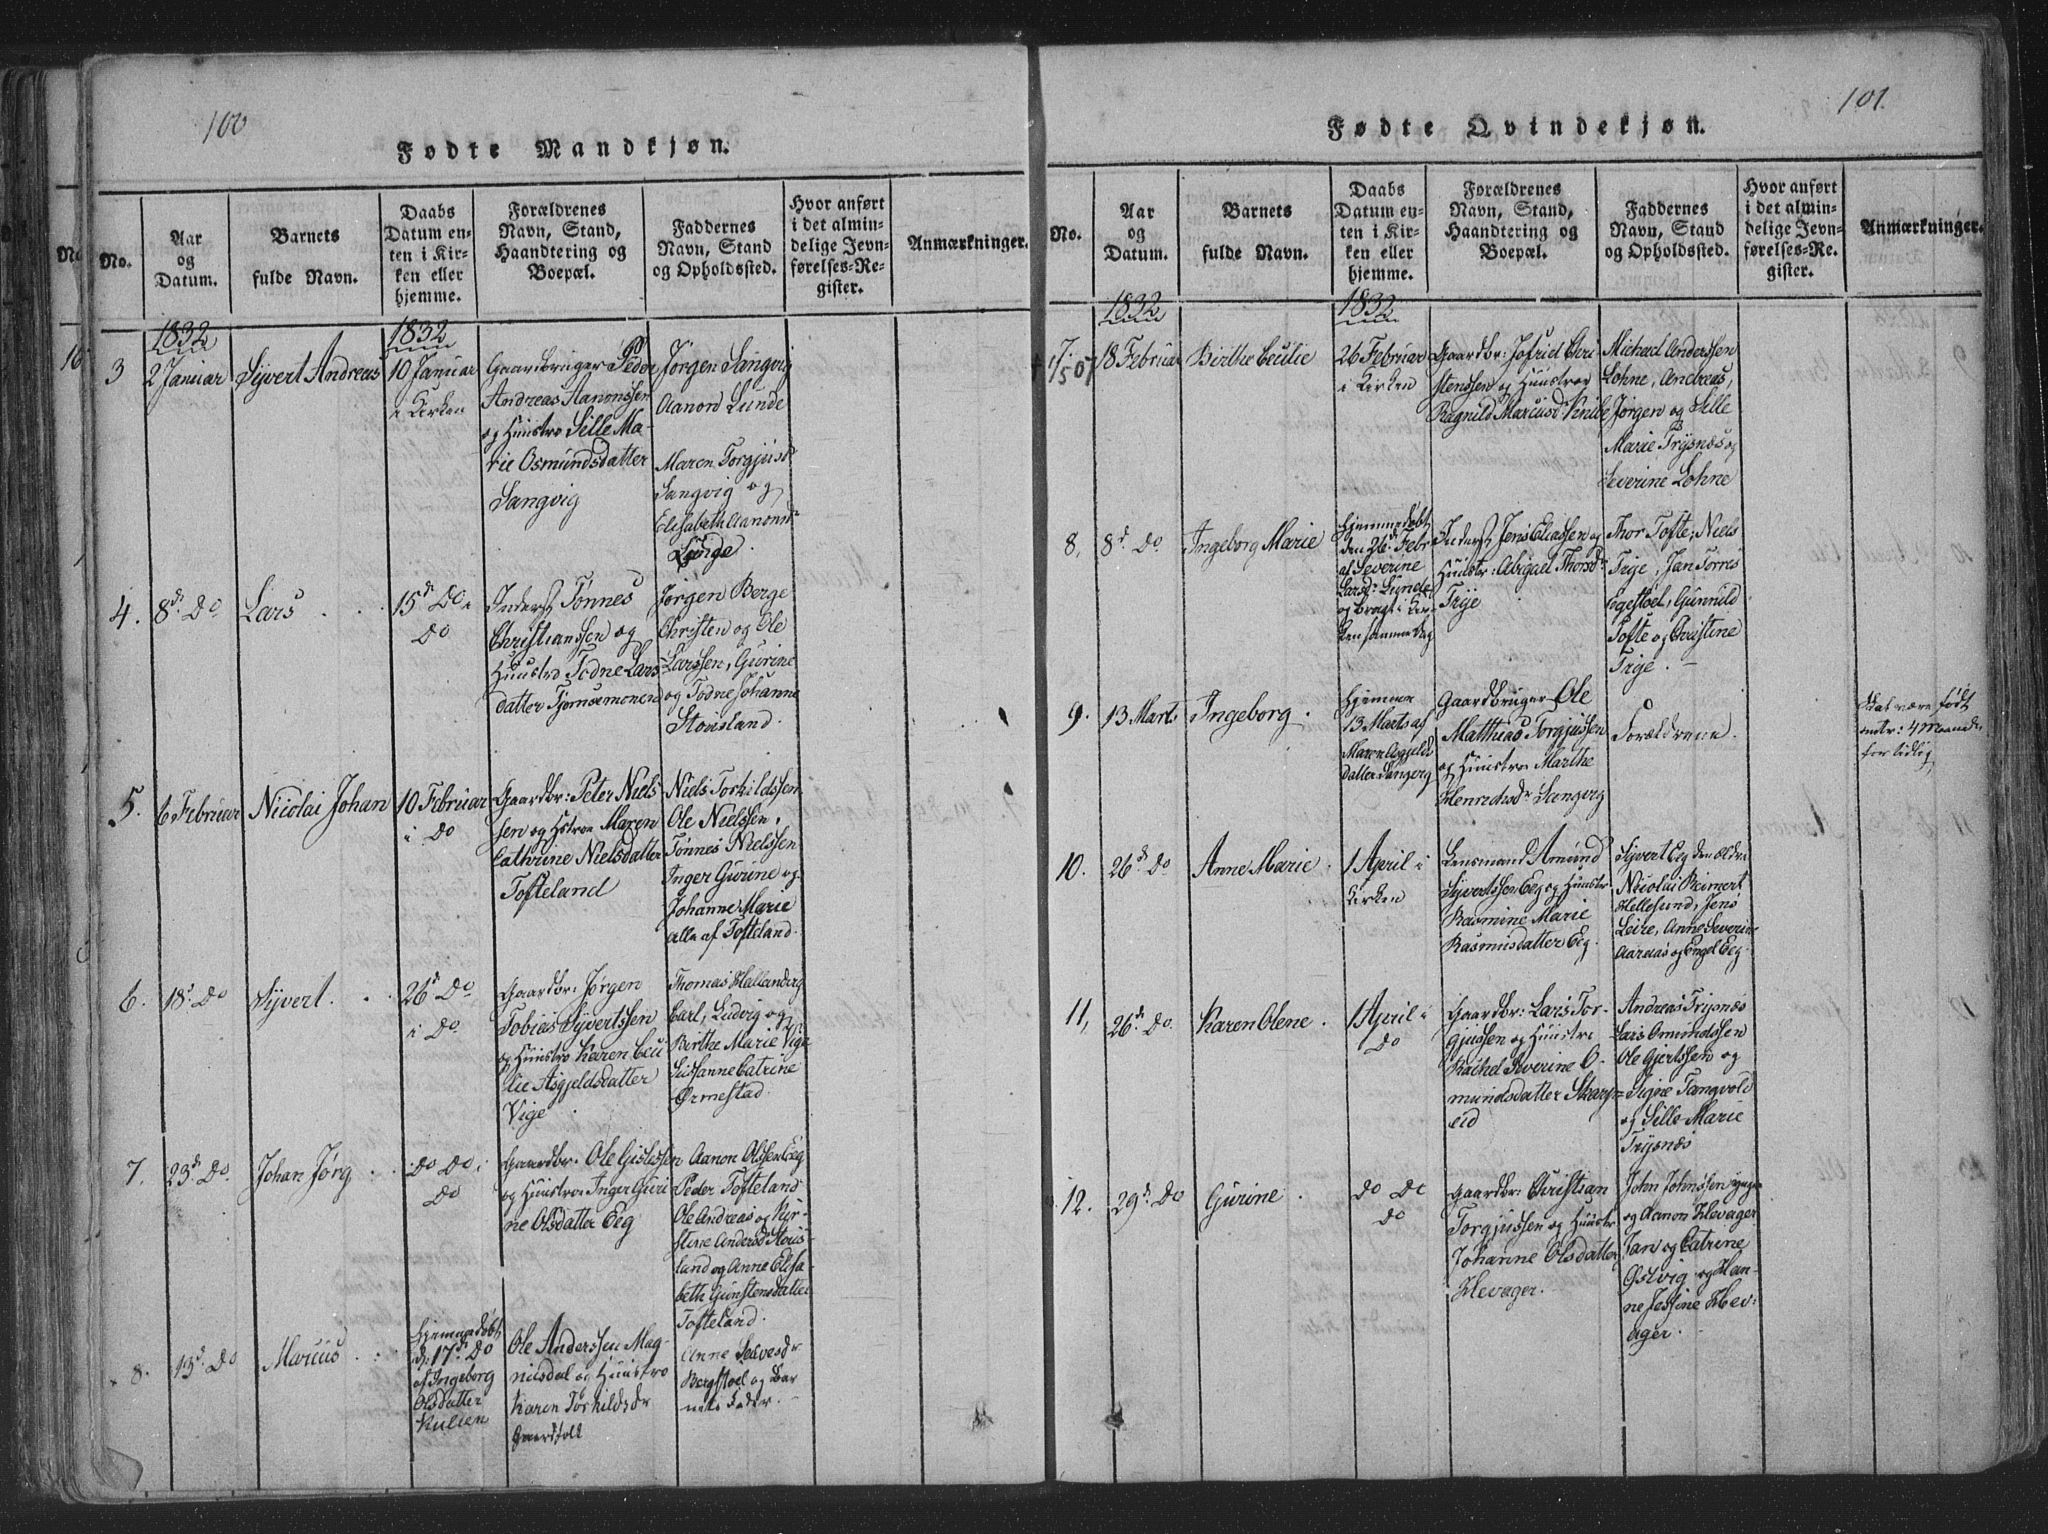 100
Fødte Mandkjøn.
No.
Aar
og
Datum.
Barnets
fulde Navn.
Daabs
Datum en-
ten i Kir-
ken eller
hjemme.
Forældrenes
Navn, Stand,
Haandtering og
Boepæl.
Faddernes
Navn, Stand
og Opholdssted.
Hvor anført
i det almin-
delige Jevn-
førelses-Re-
gister.
Anmærkninger.
1832
1832
3
2 Januar
Syvert Andreas
10 Januar
i Kirken
Gaardbruger Peder
Andreas Aanonssen
og Hustroe Sille Ma-
rie Osmundsdatter
Langvig
Jørgen Langvig
Aanon Lunde
Maren Torgjusd
Langvig og
Elisabeth Aanonsd
4.
8d Do
Lars
15d Do i
Do
Inderst Tønnes
Christianssen og
Huustro Todne Lars-
datter Tjomsemonen
Jørgen Berge
Christen og Ole
Larssen, Gurine
og Todne Johanne
Stousland.
5.
6 Februar
Nicolai Johan
10 Februar
i Do
Gaardbr: Peter Niels
sen og Hstroe Maren
Cathrine Nielsdatter
Tofteland
Niels Torkildssen
Ole Nielssen,
Tønnes Nielssen
Inger Gurine og
Johanne Marie
alle af Tofteland.
6.
18d Do
Syvert
26d Do
i Do
Gaardbr: Jørgen
Tobias Syvertssen
og Huustro Karen Ceci
lie Asgjeldsdatter
Vige
Thomas Hallandvig
Carl, Ludvig og
Birthe Marie Vige
Sussanne Catrine
Ørmestad.
7.
23d Do.
Johan Jørg
Do Do i
Do
Gaardbr. Ole Gislessen
og Huustroe Inger Guri
ne Olsdatter Eeg
Aanon Olssen Eeg
Peder Tofteland
Ole Andreas og Kir-
stine Andersd Stous-
land og Anne Elisa-
beth Gunstensdatter
Tofteland.
8.
13d Do
Marcus
Hjemmedøbt
d: 17d Do
af Ingeborg
Olsdatter
Kulien
Ole Anderssen Mag-
nilsdal og Huustroe
Karen Torkildsdr
Gaardfolk
Anne
Bergstoel og Bar
nets Fader.
101.
Fødte Qvindekjøn.
No.
Aar
og
Datum.
Barnets
fulde Navn.
Daabs
Datum en-
ten i Kir-
ken eller
hjemme.
Forældrenes
Navn, Stand,
Haandtering og
Boepæl.
Faddernes
Navn, Stand
og Opholdssted.
Hvor anført
i det almin-
delige Jevn-
førelses-Re-
gister.
Anmærkninger.
1832
1832
7.
18 Februar
Birthe Cecilie
26 Februar
i Kirken
Gaardbr: Jofrid Chri
stenssen og Huustroe
Ragnild Marcusd Knibe
Michael Anderssen
Lohne, Andreas,
Jørgen og Sille
Marie Trysnæs og
Severine Lohne
8,
8d Do
Ingeborg Marie
Hjemmedøbt
den 26d Febr
af Severine
Larsd: Lunde
og bragt i Kir-
ken samme Dag
Inderst Jens Eliassen og
Huustr: Abigael Thorsdr
Trye
Thor Tofte, Niels
Trye, Jan Torres
Egestoel, Gunnild
Tofte og Christine
Trye.
9.
13 Marts
Ingeborg.
Hjemme
13 Marts af
Maren Asgjelds
datter Langerg
Gaardbruger Ole
Matthias Torgjussen
og Huustroe Marthe
Henrichsdr Langerg
Forældrene.
Skal være født
omtr: 4 Maaned
for tidlig
10.
26d Do
Anne Marie
1 April i
Kirken
Lensmand Amund
Syvertssen Eeg og Huustr
Rasmine Marie
Rasmusdatter Eeg.
Syvert Eeg den ældre
Nicolai Reinert
Hellesund, Jens
Leire, Anne Severine
Aaraas og Engel Eeg.
11,
26d Do.
Karen Olene
1 April i
Do
Gaardbr: Lars Tor-
gjussen og Huustro
Rachel Severine O-
mundsdatter Skarp-
eid
Andreas Trysnæs
Lars Omundssen
Ole Gjertssen og
Signe Tangvold
og Sille Marie
Trysnæs
12.
29d Do
Gurine
Do Do
Do
Gaardbr: Christian
Torgjussen og Huustr
Johanne Olsdatter
Hlevager.
John Johnssen yngre
og Aanon Hlevager
Jan og Catrine
Østvig og Han-
ne Jessine Hlev-
ager.